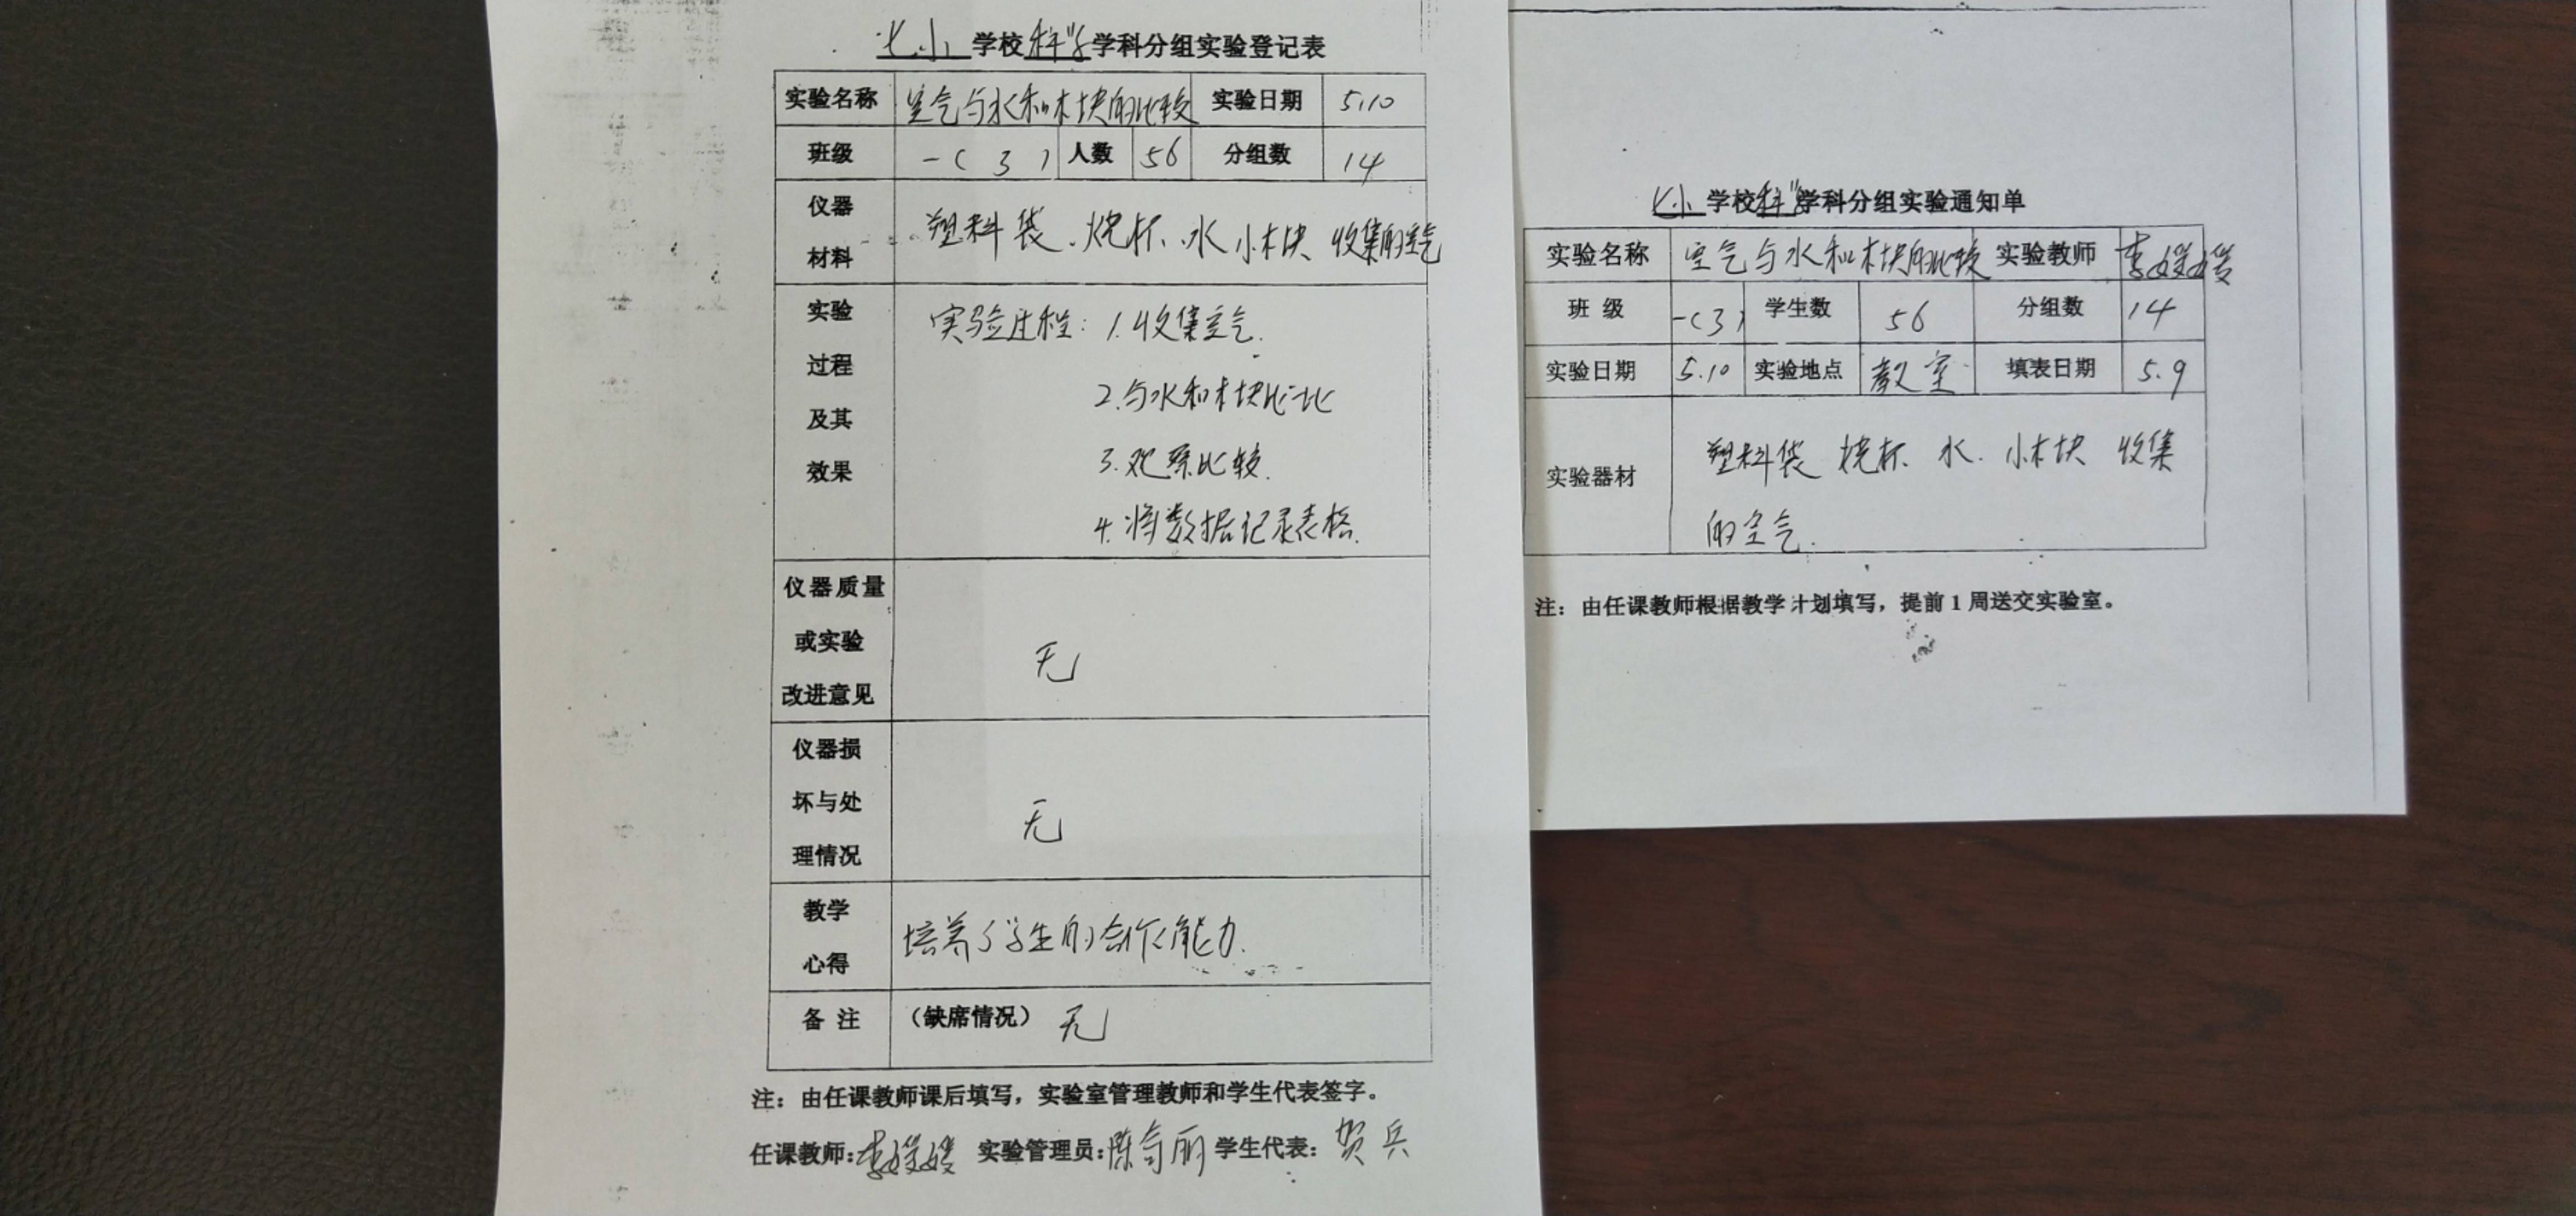 七小学校科学学科分组实验登记表
实验名称 空气与水和木块的比较 实验日期 5.10
班级 一(3) 人数 56 分组数 14
仪器
材料
塑料袋、烧杯、水 小木块 收集的空气
实验
过程
及其
效果
实验过程：1.收集空气.
2.与水和木块比一比
3.观察比较.
4.将数据记录表格.
仪器质量
或实验
改进意见
无
仪器损
坏与处
理情况
无
教学
心得
培养了学生的合作能力.
备 注 （缺席情况） 无
注：由任课教师课后填写，实验室管理教师和学生代表签字。
任课教师:李媛媛 实验管理员:陈奇丽 学生代表：贺兵
七小学校科学学科分组实验通知单
实验名称 空气与水和木块的比较 实验教师 李媛媛
班 级 一(3) 学生数 56 分组数 14
实验日期 5.10 实验地点 教室 填表日期 5.9
实验器材
塑料袋 烧杯、水. 小木块 收集
的空气.
注：由任课教师根据教学计划填写，提前1周送交实验室。